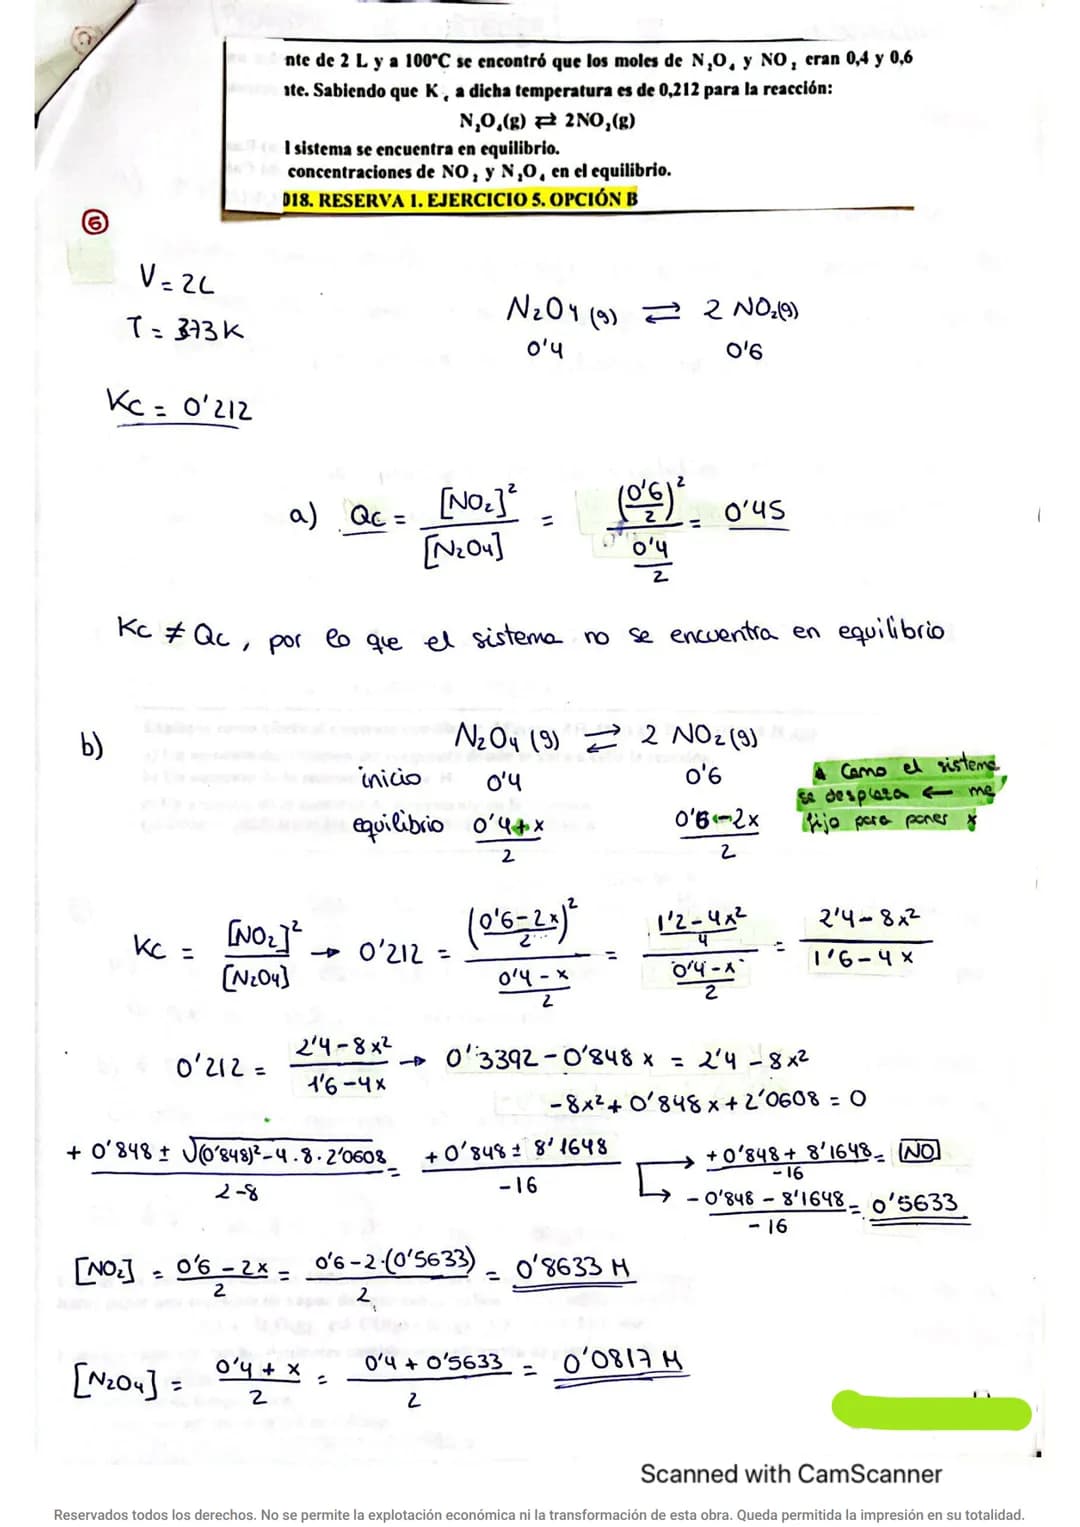 nte de 2 L y a 100°C se encontró que los moles de N₂O₄ y NO₂ eran 0,4 y 0,6
nte. Sabiendo que K꜀ a dicha temperatura es de 0,212 para la reacción:
N₂O₄(g) ⇄ 2NO₂(g)
l sistema se encuentra en equilibrio.
concentraciones de NO₂ y N₂O₄ en el equilibrio.
018. RESERVA 1. EJERCICIO 5. OPCIÓN B
5
V = 2L
T = 373K
N₂O₄(g) ⇄ 2 NO₂(g)
0'4 0'6
Kc = 0'212
a) Qc = [NO₂]² / [N₂O₄] = (0'6/2)² / (0'4/2) = 0'45
Kc ≠ Qc, por lo que el sistema no se encuentra en equilibrio
b) N₂O₄(g) ⇄ 2 NO₂(g)
inicio 0'4 0'6
equilibrio (0'4+x)/2 (0'6-2x)/2
Como el sistema
se desplaza ← me
fijo para poner x
Kc = [NO₂]² / [N₂O₄] → 0'212 = ((0'6-2x)/2)² / ((0'4-x)/2) = ((1'2-4x²)/4) / ((0'4-x)/2) = (2'4-8x²) / (1'6-4x)
0'212 = (2'4-8x²) / (1'6-4x) → 0'3392-0'848x = 2'4-8x²
-8x²+0'848x+2'0608 = 0
(+0'848 ± √(0'848)²-4.8.2'0608) / 2-8 = (+0'848 ± 8'1648) / -16
(+0'848 + 8'1648) / -16 = NO
(-0'848 - 8'1648) / -16 = 0'5633
[NO₂] = (0'6-2x)/2 = (0'6-2·(0'5633))/2 = 0'8633 M
[N₂O₄] = (0'4+x)/2 = (0'4+0'5633)/2 = 0'0817 M
Scanned with CamScanner
Reservados todos los derechos. No se permite la explotación económica ni la transformación de esta obra. Queda permitida la impresión en su totalidad.